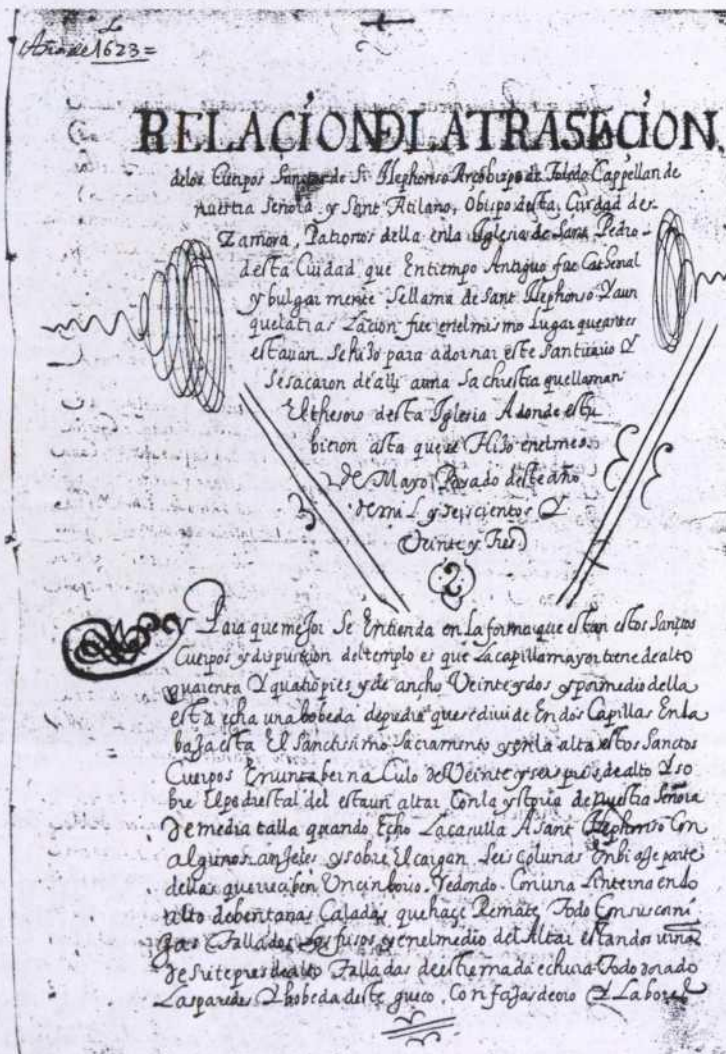 Año de 1623=
RELACION DLATRASLACION,
delos Cuerpos Sanctos de St Ilephonso Arçobispo de Toledo Cappellan de
nuestra Señora y Sant Atilano, Obispo desta, Ciudad de
Zamora, Patronos della enla Iglesia de Sant Pedro
desta Cuidad, que Entiempo Antiguo fue Catredal
y bulgar mente Sellama de Sant Ilephonso. Yaun
quelatras Lacion fue enelmismo Lugar queantes
estauan Sehiço para adornar este Santuario Y
Sesacaron de alli auna Sachristia quellaman
Elthesoro desta Iglesia Adonde estu
bieron asta que se Hiço enelmes
de Mayo Pasado desteaño
demil y seiscientos Y
Veinte y Tres
Y Para que mejor Se Entienda en La forma que estan estos Sanctos
Cuerpos y dispusicion deltemplo es que Lacapillamayor tiene de alto
quarenta Y quatro pies y de ancho Veinteydos y pormedio della
esta echa una bobeda depiedra que sediuide En dos Capillas En la
baja esta El Sanctissimo Sacramento y en la alta estos Sanctos
Cuerpos En un taberna Culo de Veinte y seis pies de alto Y so
bre El pedrestal del esta un altar Con la ystoria de nuestra Señora
de media talla quando Echo La casulla A Sant Ilephonso Con
algunos anjeles y sobre El cargan Seis Colunas
dellas que reciben Un cinborio Redondo. Con una Linterna en lo
alto de bentanas Caladas que haçe Remate, Todo Con sus
Tallados y en el medio del Altar estan dos urnas
de siete pies de alto Talladas de estremada echura Todo dorado
Las paredes Y bobeda deste gueco, Con fajas de oro Y Labores